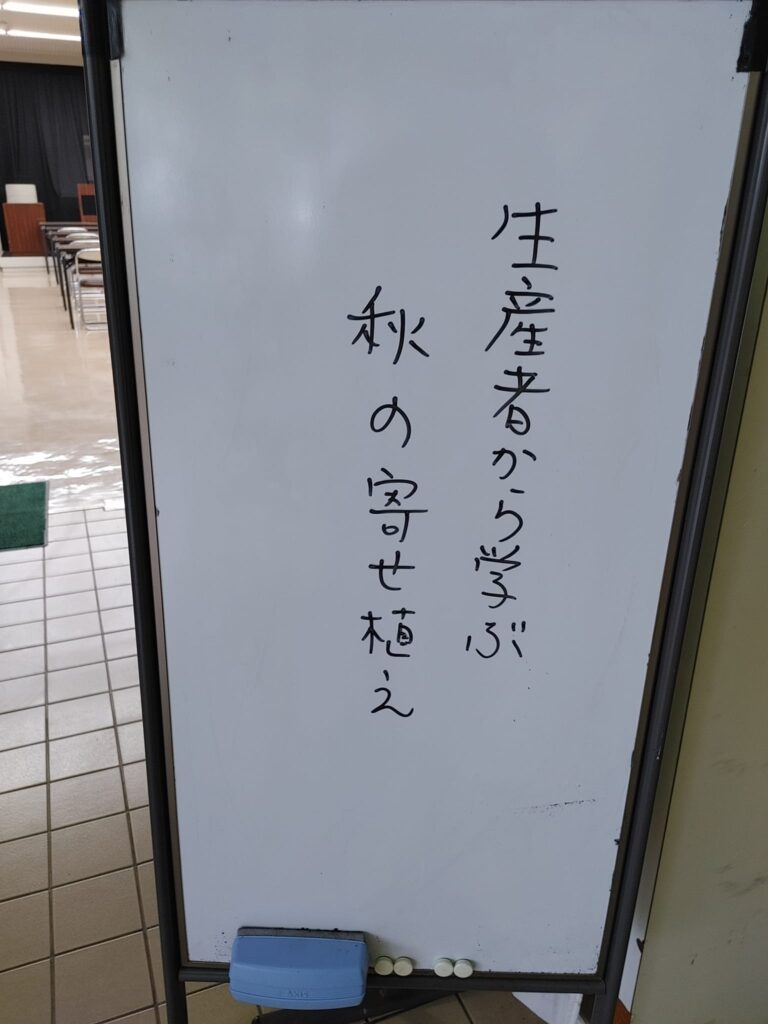 生産者から学ぶ
秋の寄せ植え